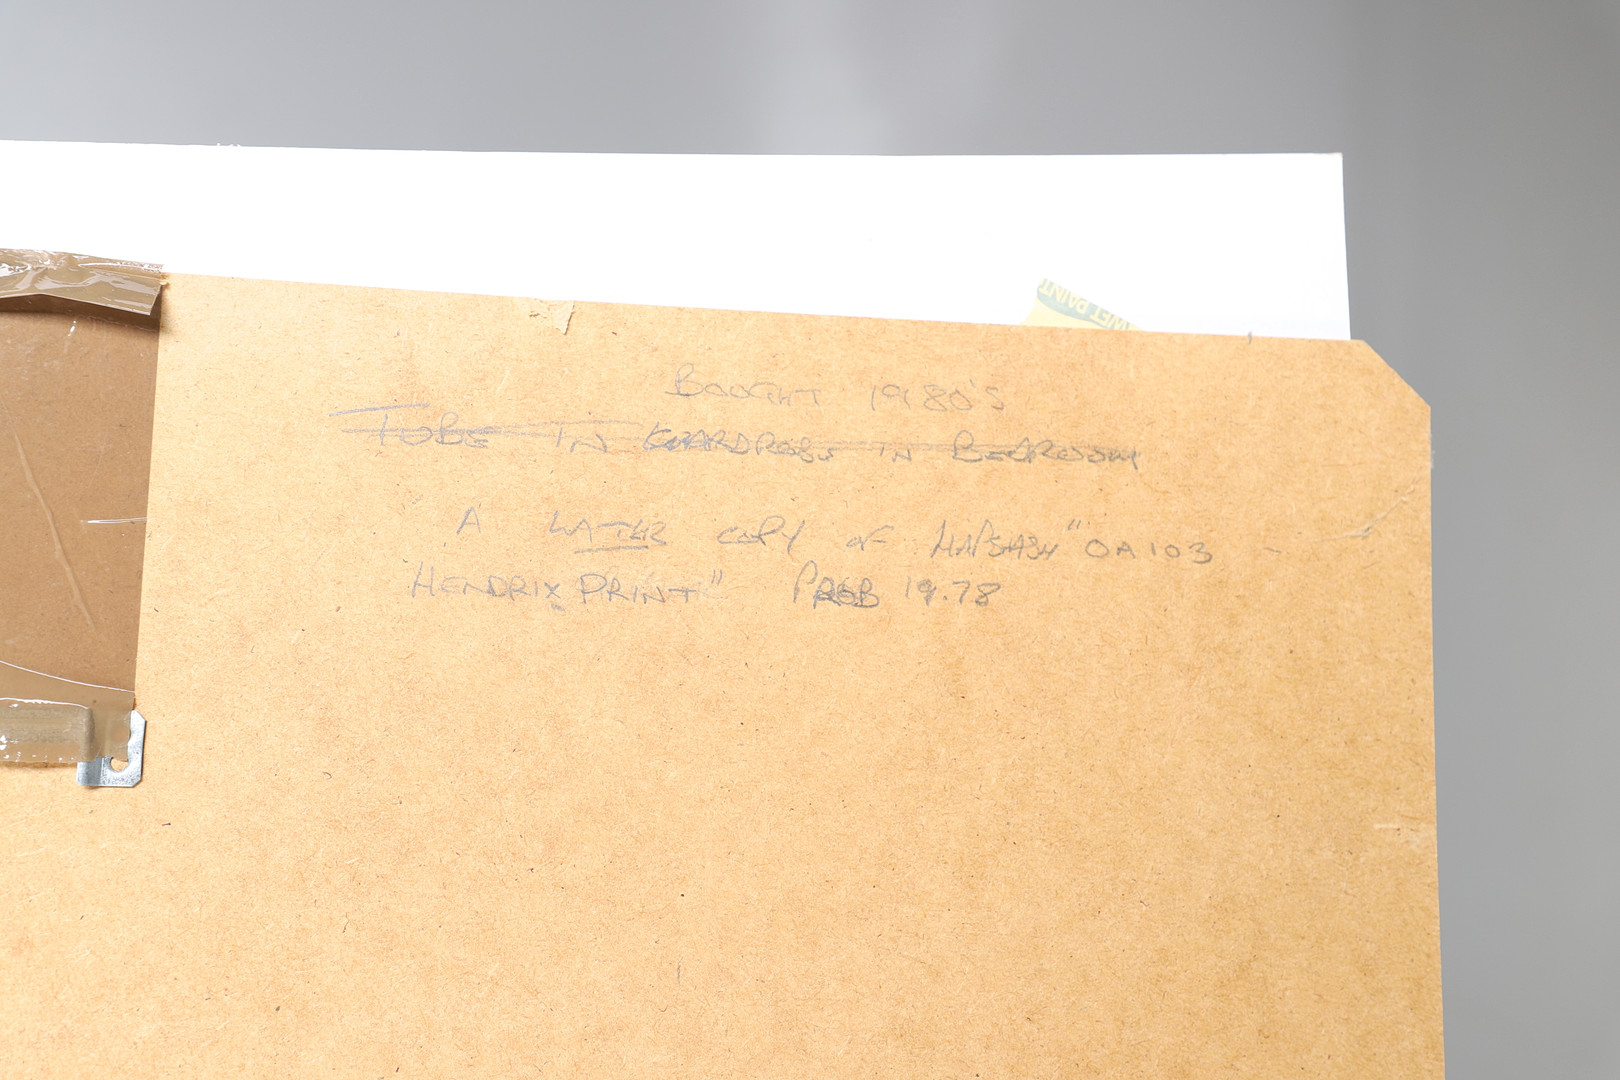 WET PAINT
BOUGHT 1980'S
TUBE IN WARDROBE IN BEDROOM
A LATER COPY OF HAPSHASH "OA 103 -
HENDRIX PRINT" PROB 1978